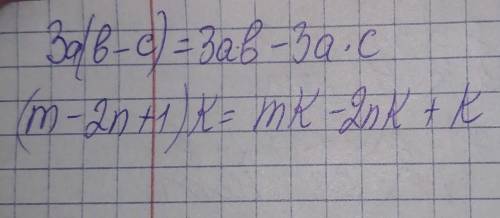 3a(в-c)=3a·в-3a·c
(m-2n+1)k=mk-2nk+k